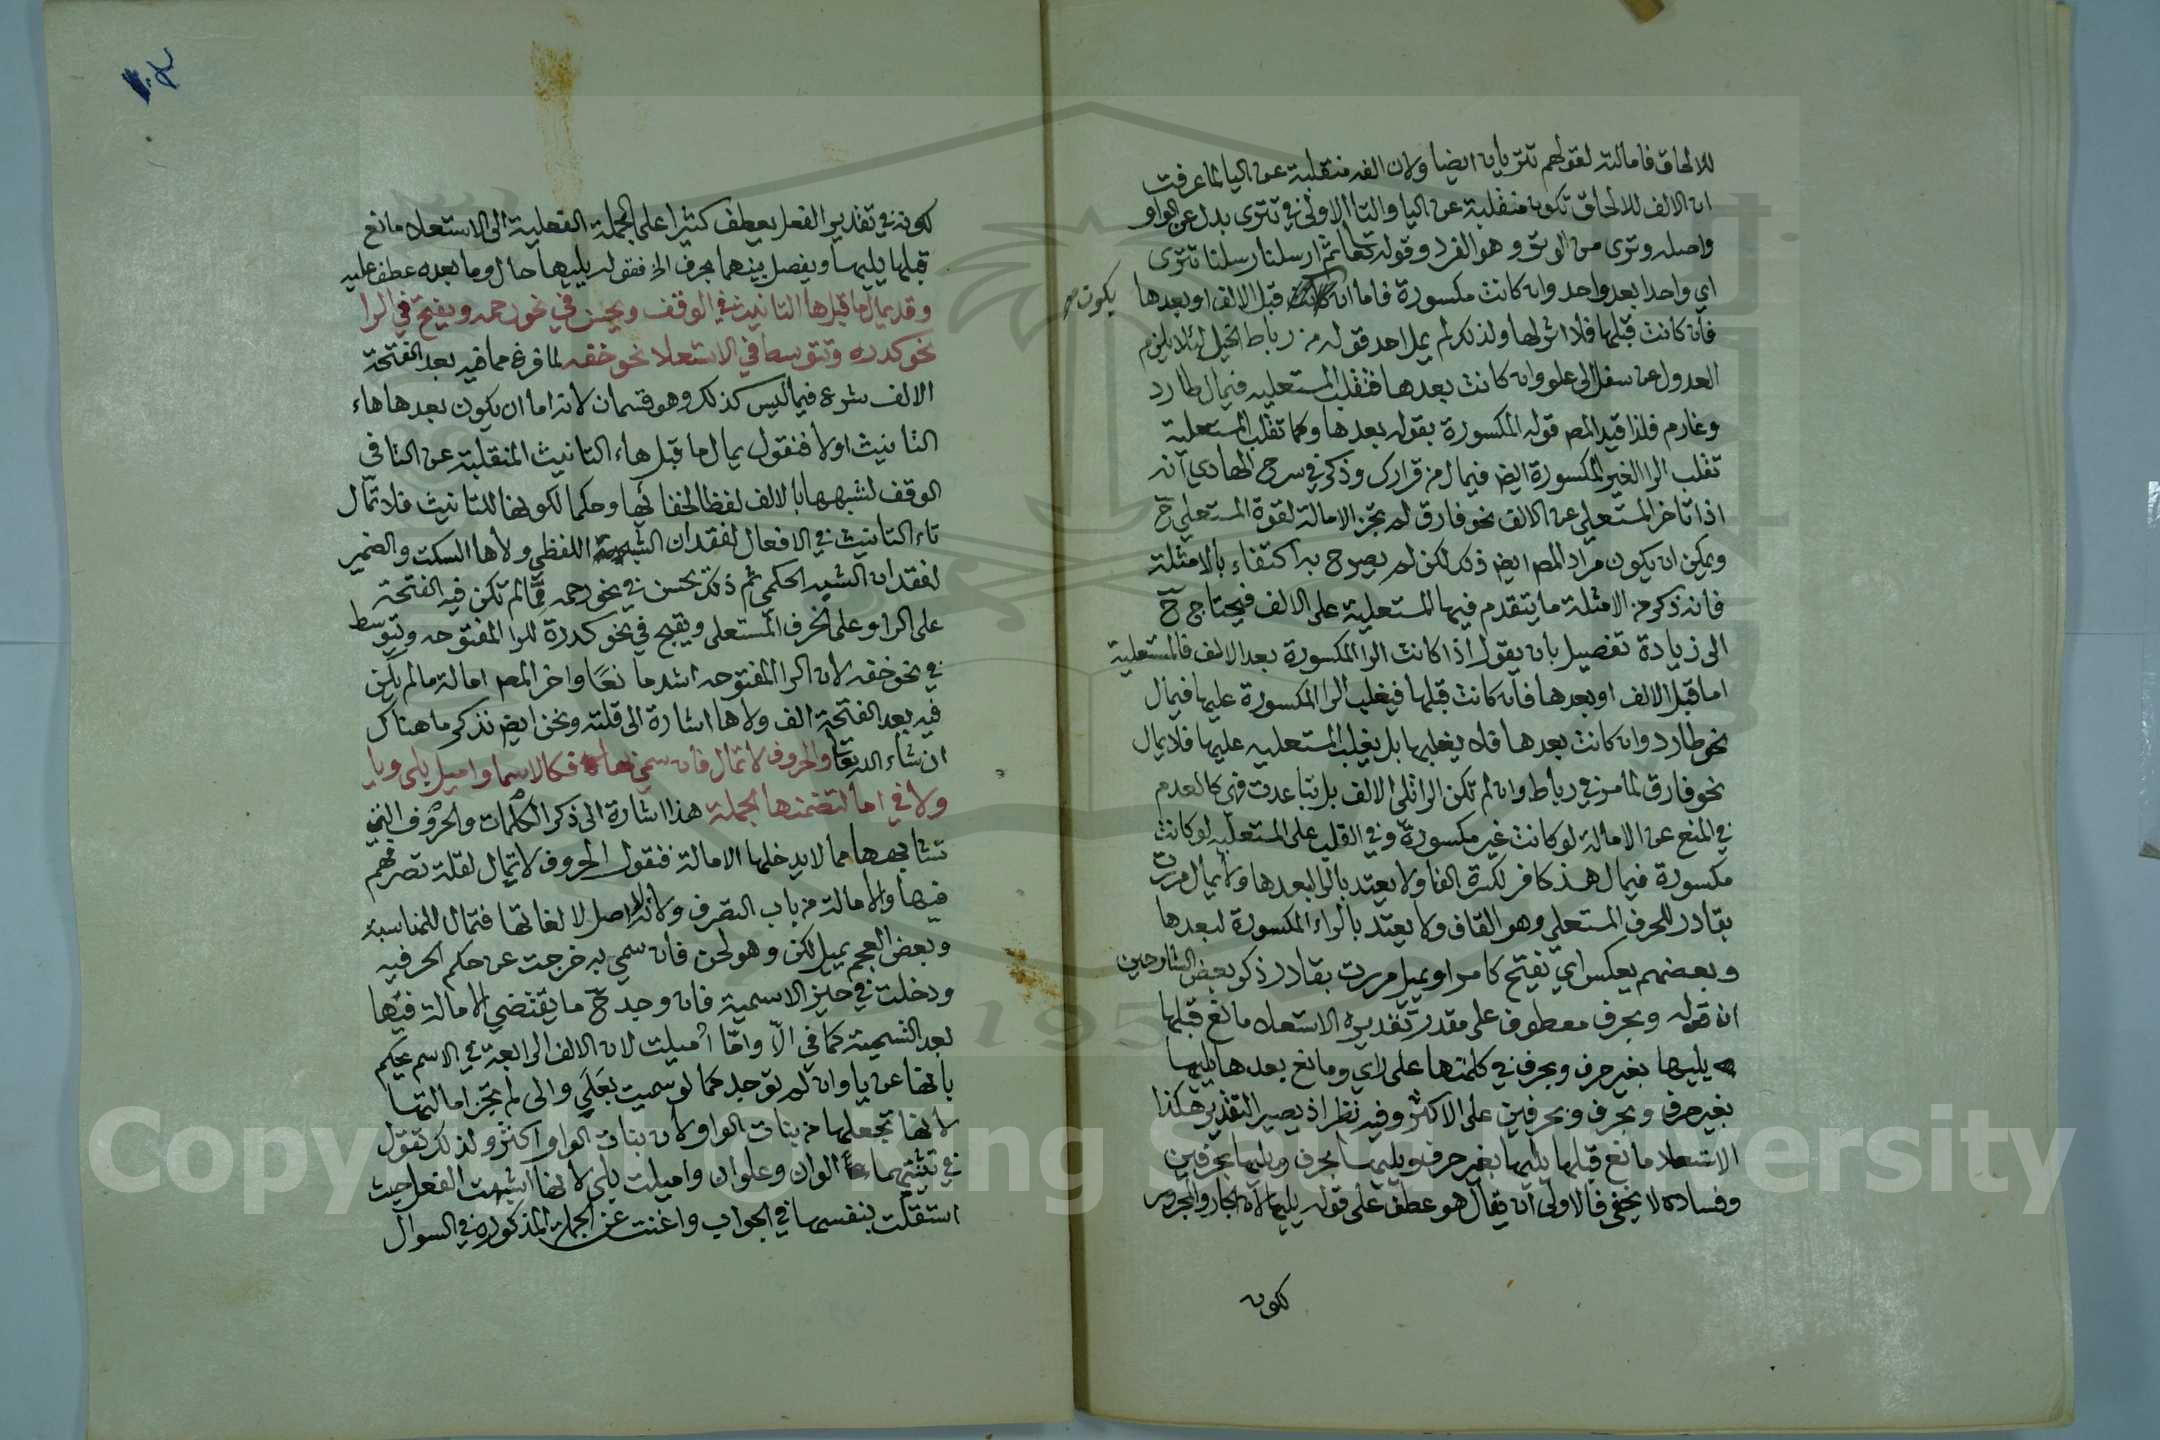 للالحاق فامالته لقولهم تتريان ايضا ولان الفه منقلبة عن اليا لما عرفت
ان الالف للالحاق تكون منقلبة عن اليا والتا الاولى في تترى بدل عن الواو
واصله وترى من الوتر وهو الفرد وقوله تعا ثم ارسلنا رسلنا تترى
اي واحدا بعد واحد وان كانت مكسورة فاما ان يكون قبل الالف او بعدها
فان كانت قبلها فلا اثر لها ولذلك لم يمل احد قوله من رباط الخيل لئلا يلزم
العدول عن سفل الى علو وان كانت بعدها فتغلب المستعليه فيمال طارد
وغارم فلذا قيد المص قوله المكسورة بقوله بعدها وكما تغلب المستعلية
تغلب الرا الغير المكسورة ايض فيمال من قرارك وذكر في شرح الهادي انه
اذا تاخر المستعلي عن الالف نحو فارق لم تجز الامالة لقوة المستعلي ح
ويمكن ان يكون مراد المص ايض ذلك لكن لم يصرح به اكتفاء بالامثلة
فانه ذكر من الامثلة ما يتقدم فيها المستعلية على الالف فيحتاج ح
الى زيادة تفصيل بان يقول اذا كانت الرا المكسورة بعد الالف فالمستعلية
اما قبل الالف او بعدها فان كانت قبلها فيغلب الرا المكسورة عليها فيمال
نحو طارد وان كانت بعدها فلا يغلبها بل يغلب المستعليه عليها فلا يمال
نحو فارق لما مر في رباط وان لم تكن الرا تلي الالف بل تباعدت فهي كالعدم
في المنع عن الامالة لو كانت غير مكسورة وفي القلب على المستعليه لو كانت
مكسورة فيمال هذ كافر لكسرة الفا ولا يعتد بالرا لبعدها ولا يمال مررت
بقادر للحرف المستعلي وهو القاف ولا يعتد بالراء المكسورة لبعدها
وبعضهم يعكس اي يفتح كافر او يميل مررت بقادر ذكر بعض الشارحين
ان قوله وبحرف معطوف على مقدر تقديره الاستعلا مانع قبلها
يليها بغير حرف وبحرف في كلمتها على راي ومانع بعدها يليها
بغير حرف وبحرف وبحرفين على الاكثر وفيه نظر اذ يصير التقدير هكذا
الاستعلا مانع قبلها يليها بغير حرف ويليها بحرف ويليها بحرفين
وفساده لا يخفى فالاولى ان يقال هو عطف على قوله يليها لان الجار والمجرور
لكون
لكونه في تقدير الفعل يعطف كثيرا على الجملة الفعلية اي الاستعلا مانع
قبلها يليها ويفصل بينهما بحرف الخ فقوله يليها حال وما بعده عطف عليه
وقد يمال ما قبل ها التانيث في الوقف ويحسن في نحو رحمه ويقبح في الرا
نحو كدره وتتوسط في الاستعلا نحو خقه لما فرغ مما فيه بعد الفتحة
الالف شرع فيما ليس كذلك وهو قسمان لانه اما ان يكون بعدها هاء
التانيث او لا فنقول يمال ما قبل هاء التانيث المنقلبة عن التا في
الوقف لشبهها بالالف لفظا لخفائها وحكما لكونها للتانيث فلا تمال
تاء التانيث في الافعال لفقدان الشبه اللفظي ولا ها السكت والضمير
لفقدان الشبه الحكمي ثم ذلك يحسن في نحو رحمه مما لم تكن فيه الفتحة
على الرا و على الحرف المستعلى ويقبح في نحو كدرة للرا المفتوحه وتتوسط
في نحو خقه لان الرا المفتوحه اشد مانعا واخر المص امالة ما لم يكن
فيه بعد الفتحة الف ولا ها اشارة الى قلته ونحن ايض نذكر ما هناك
ان شاء الله تعا والحروف لا تمال فان سمي بها فكالاسما واميل بلى ويا
ولا في اما لتضمنها الجملة هذا اشارة الى ذكر الكلمات والحروف التي
تشابهها مما لا يدخلها الامالة فنقول الحروف لا تمال لقلة تصرفهم
فيها والامالة من باب التصرف ولانه لا اصل لالفاتها فتمال للمناسبة
وبعض العجم يميل لكن وهو لحن فان سمي به خرجت عن حكم الحرفيه
ودخلت في حيز الاسمية فان وجد ح ما يقتضي الامالة فيها
بعد التسمية كما في الّا وامّا اميلت لان الالف الرابعة في الاسم يحكم
بانها عن يا وان لم توجد كما لو سميت بعلي والى لم تجز امالتها
لانها تجعلها من بنات الواو لان بنات الواو اكثر ولذلك تقول
في تثنيتهما الوان وعلوان واميلت بلى لانها اشبهت الفعل حيث
استقلت بنفسها في الجواب واغنت عن الجملة المذكورة في السوال
Copyright © King Saud University
195